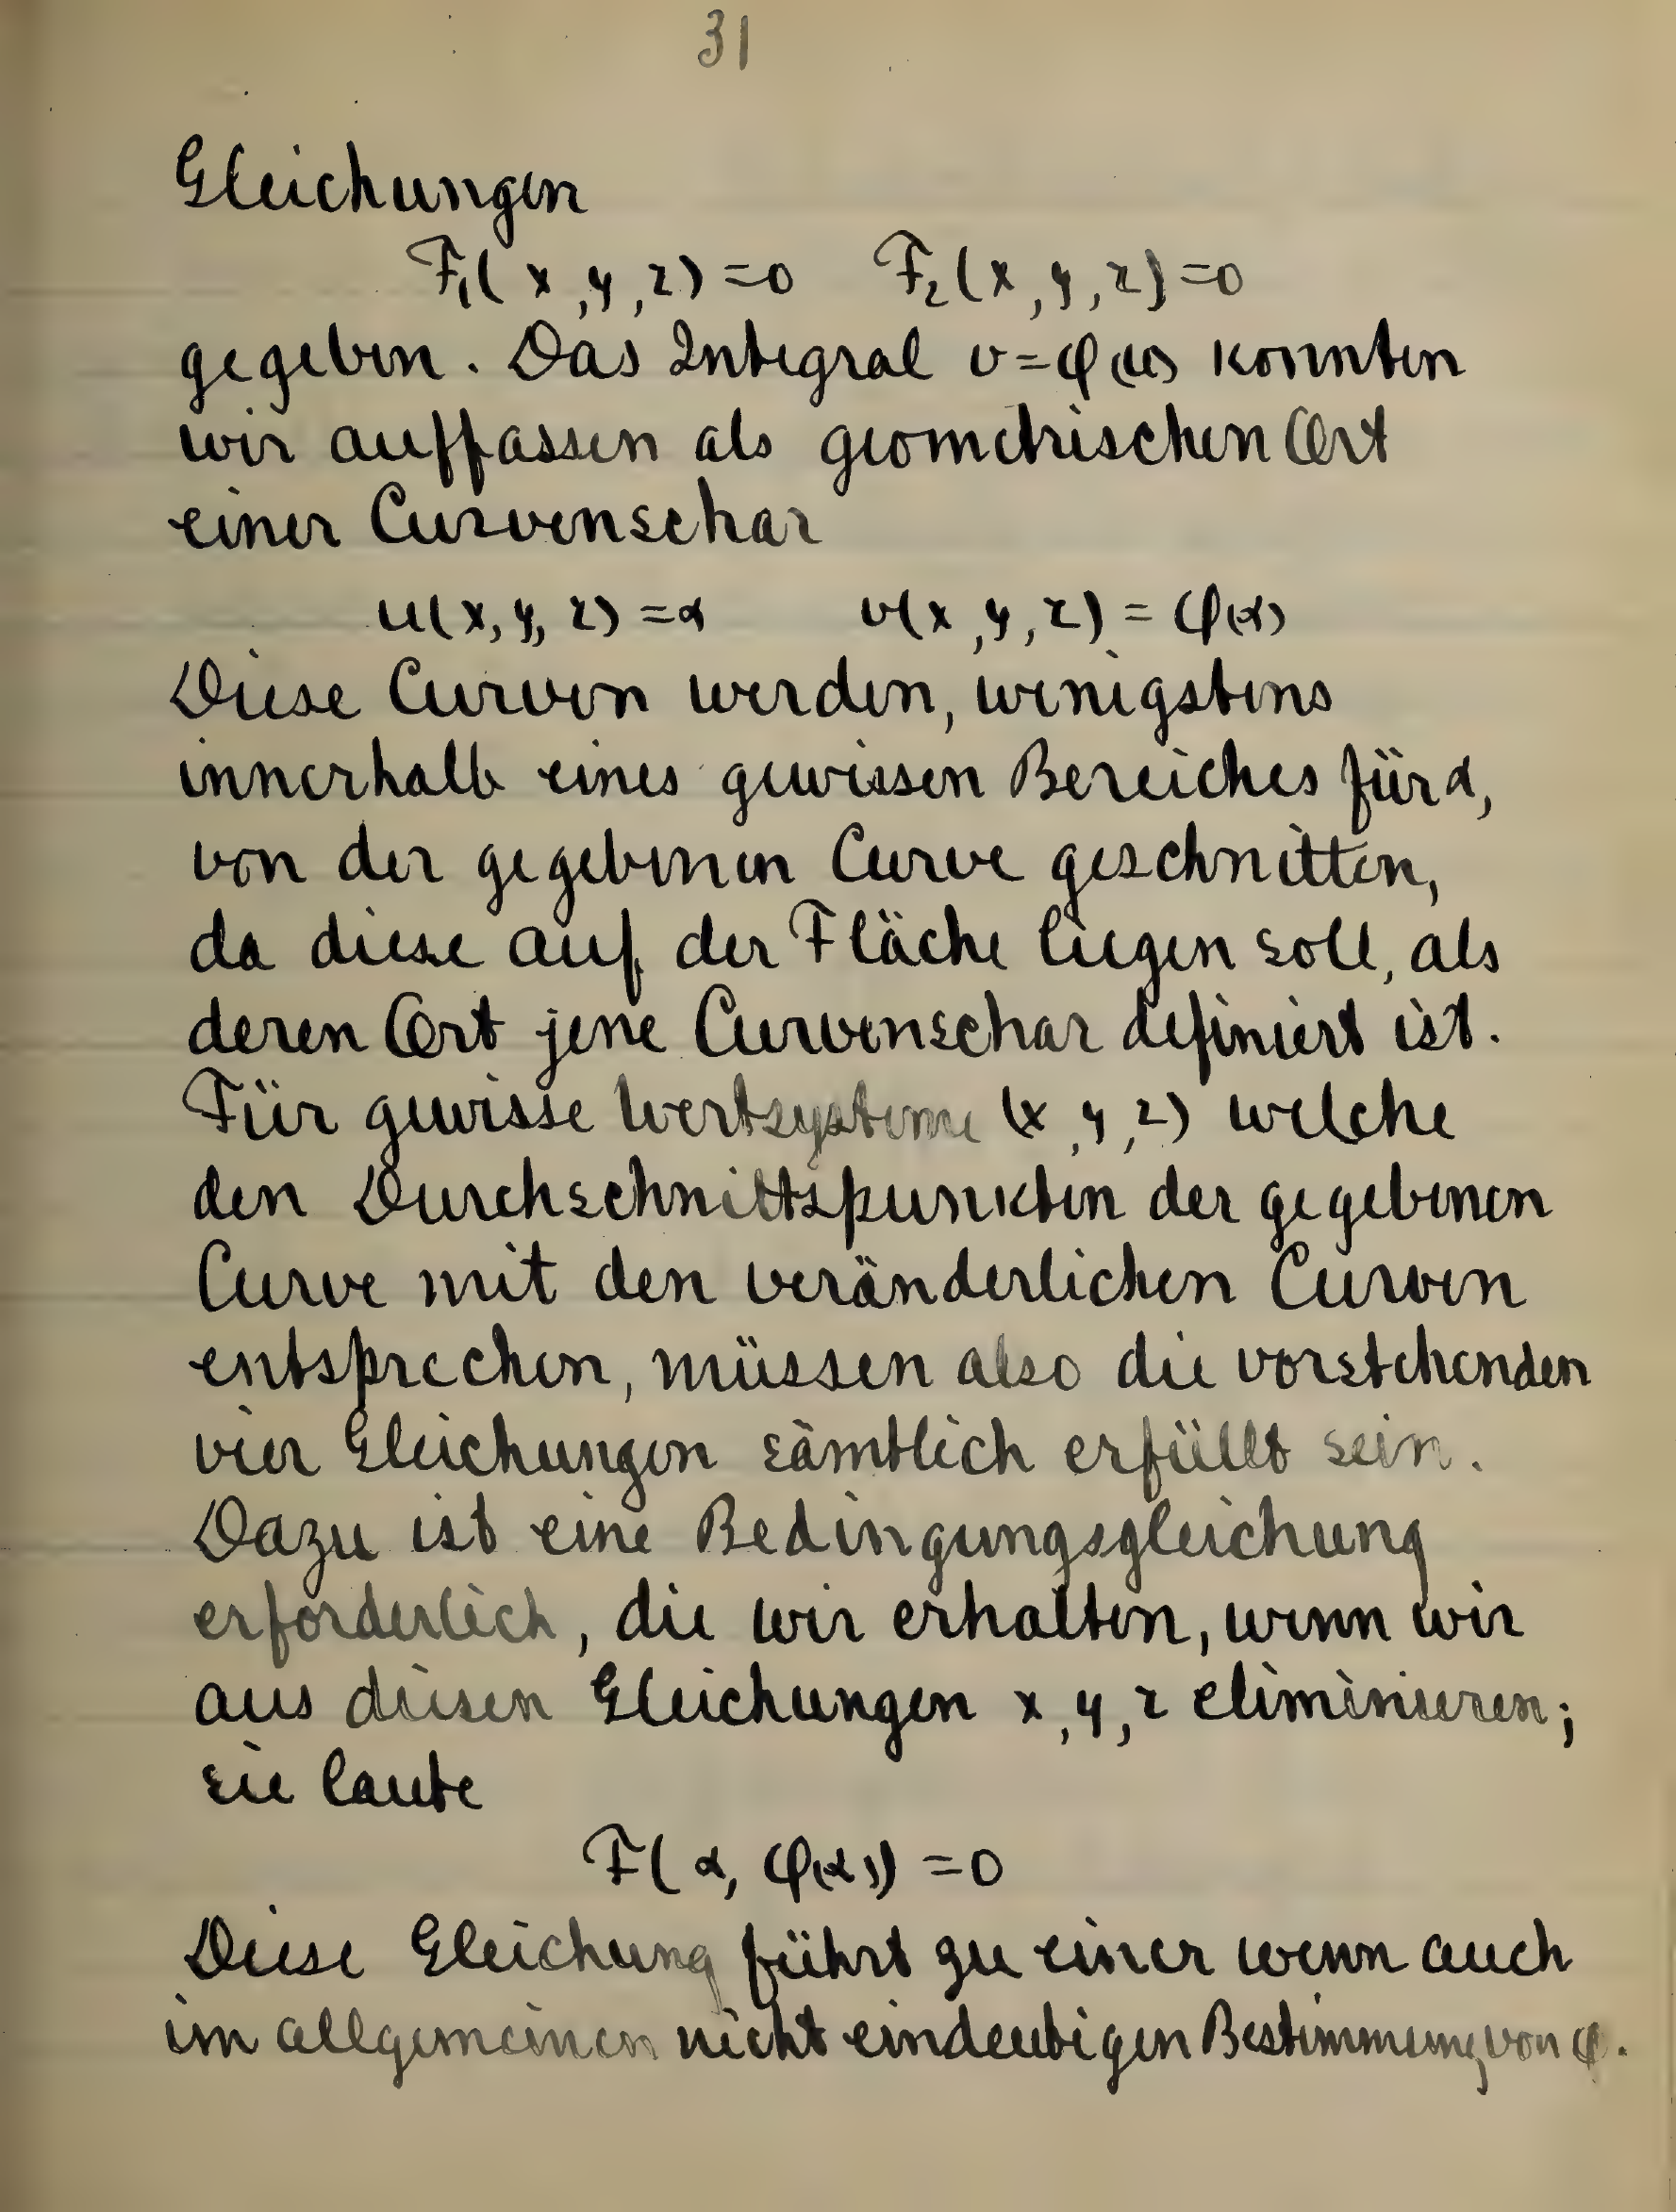 31
Gleichungen
F₁(x,y,z)=0 F₂(x,y,z)=0
gegeben. Das Integral v=φ(u) konnten
wir auffassen als geometrischen Ort
einer Curvenschar
u(x,y,z)=α v(x,y,z)=φ(α)
Diese Curven werden, wenigstens
innerhalb eines gewissen Bereiches für α,
von der gegebenen Curve geschnitten,
da diese auf der Fläche liegen soll, als
deren Ort jene Curvenschar definiert ist.
Für gewisse Wertsysteme (x,y,z) welche
den Durchschnittspunkten der gegebenen
Curve mit den veränderlichen Curven
entsprechen, müssen also die vorstehenden
vier Gleichungen sämtlich erfüllt sein.
Dazu ist eine Bedingungsgleichung
erforderlich, die wir erhalten, wenn wir
aus diesen Gleichungen x,y,z eliminieren;
sie laute
F(α, φ(α))=0
Diese Gleichung führt zu einer wenn auch
im allgemeinen nicht eindeutigen Bestimmung von φ.